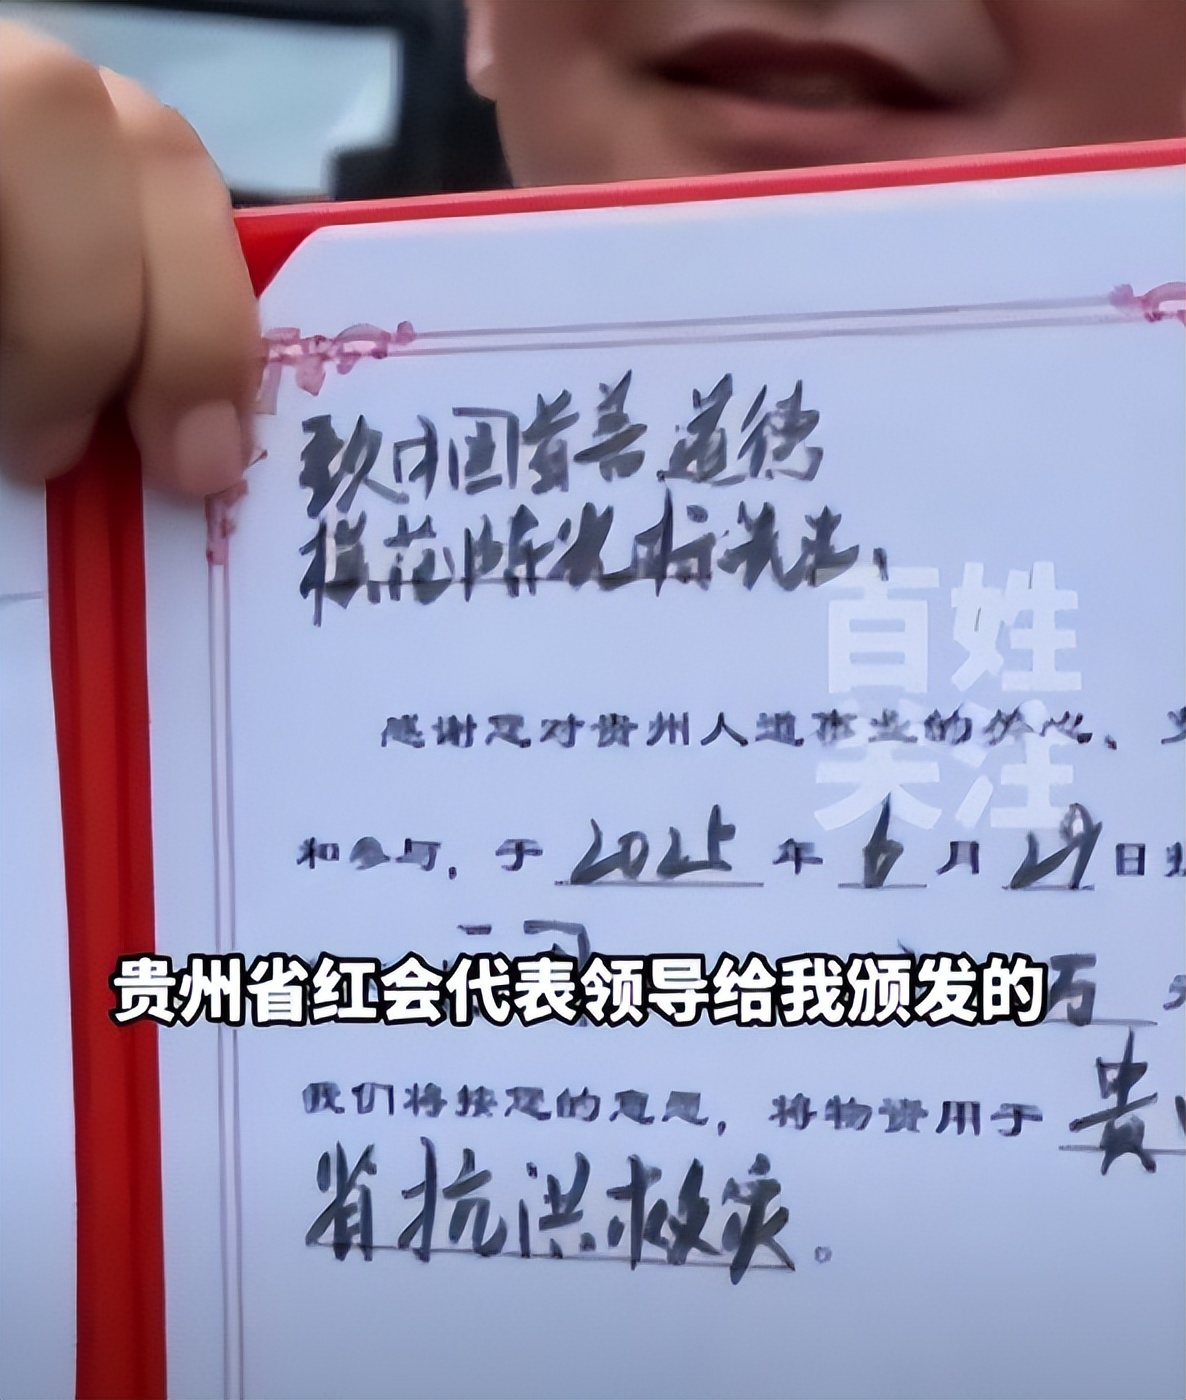 致中国首善、道德
模范陈光标先生：
感谢您对贵州人道事业的关心、
和参与，于 2025 年 6 月 29 日
万
贵州省红会代表领导给我颁发的
我们将按您的意愿，将物资用于 贵
省抗洪救灾。
百姓
关注